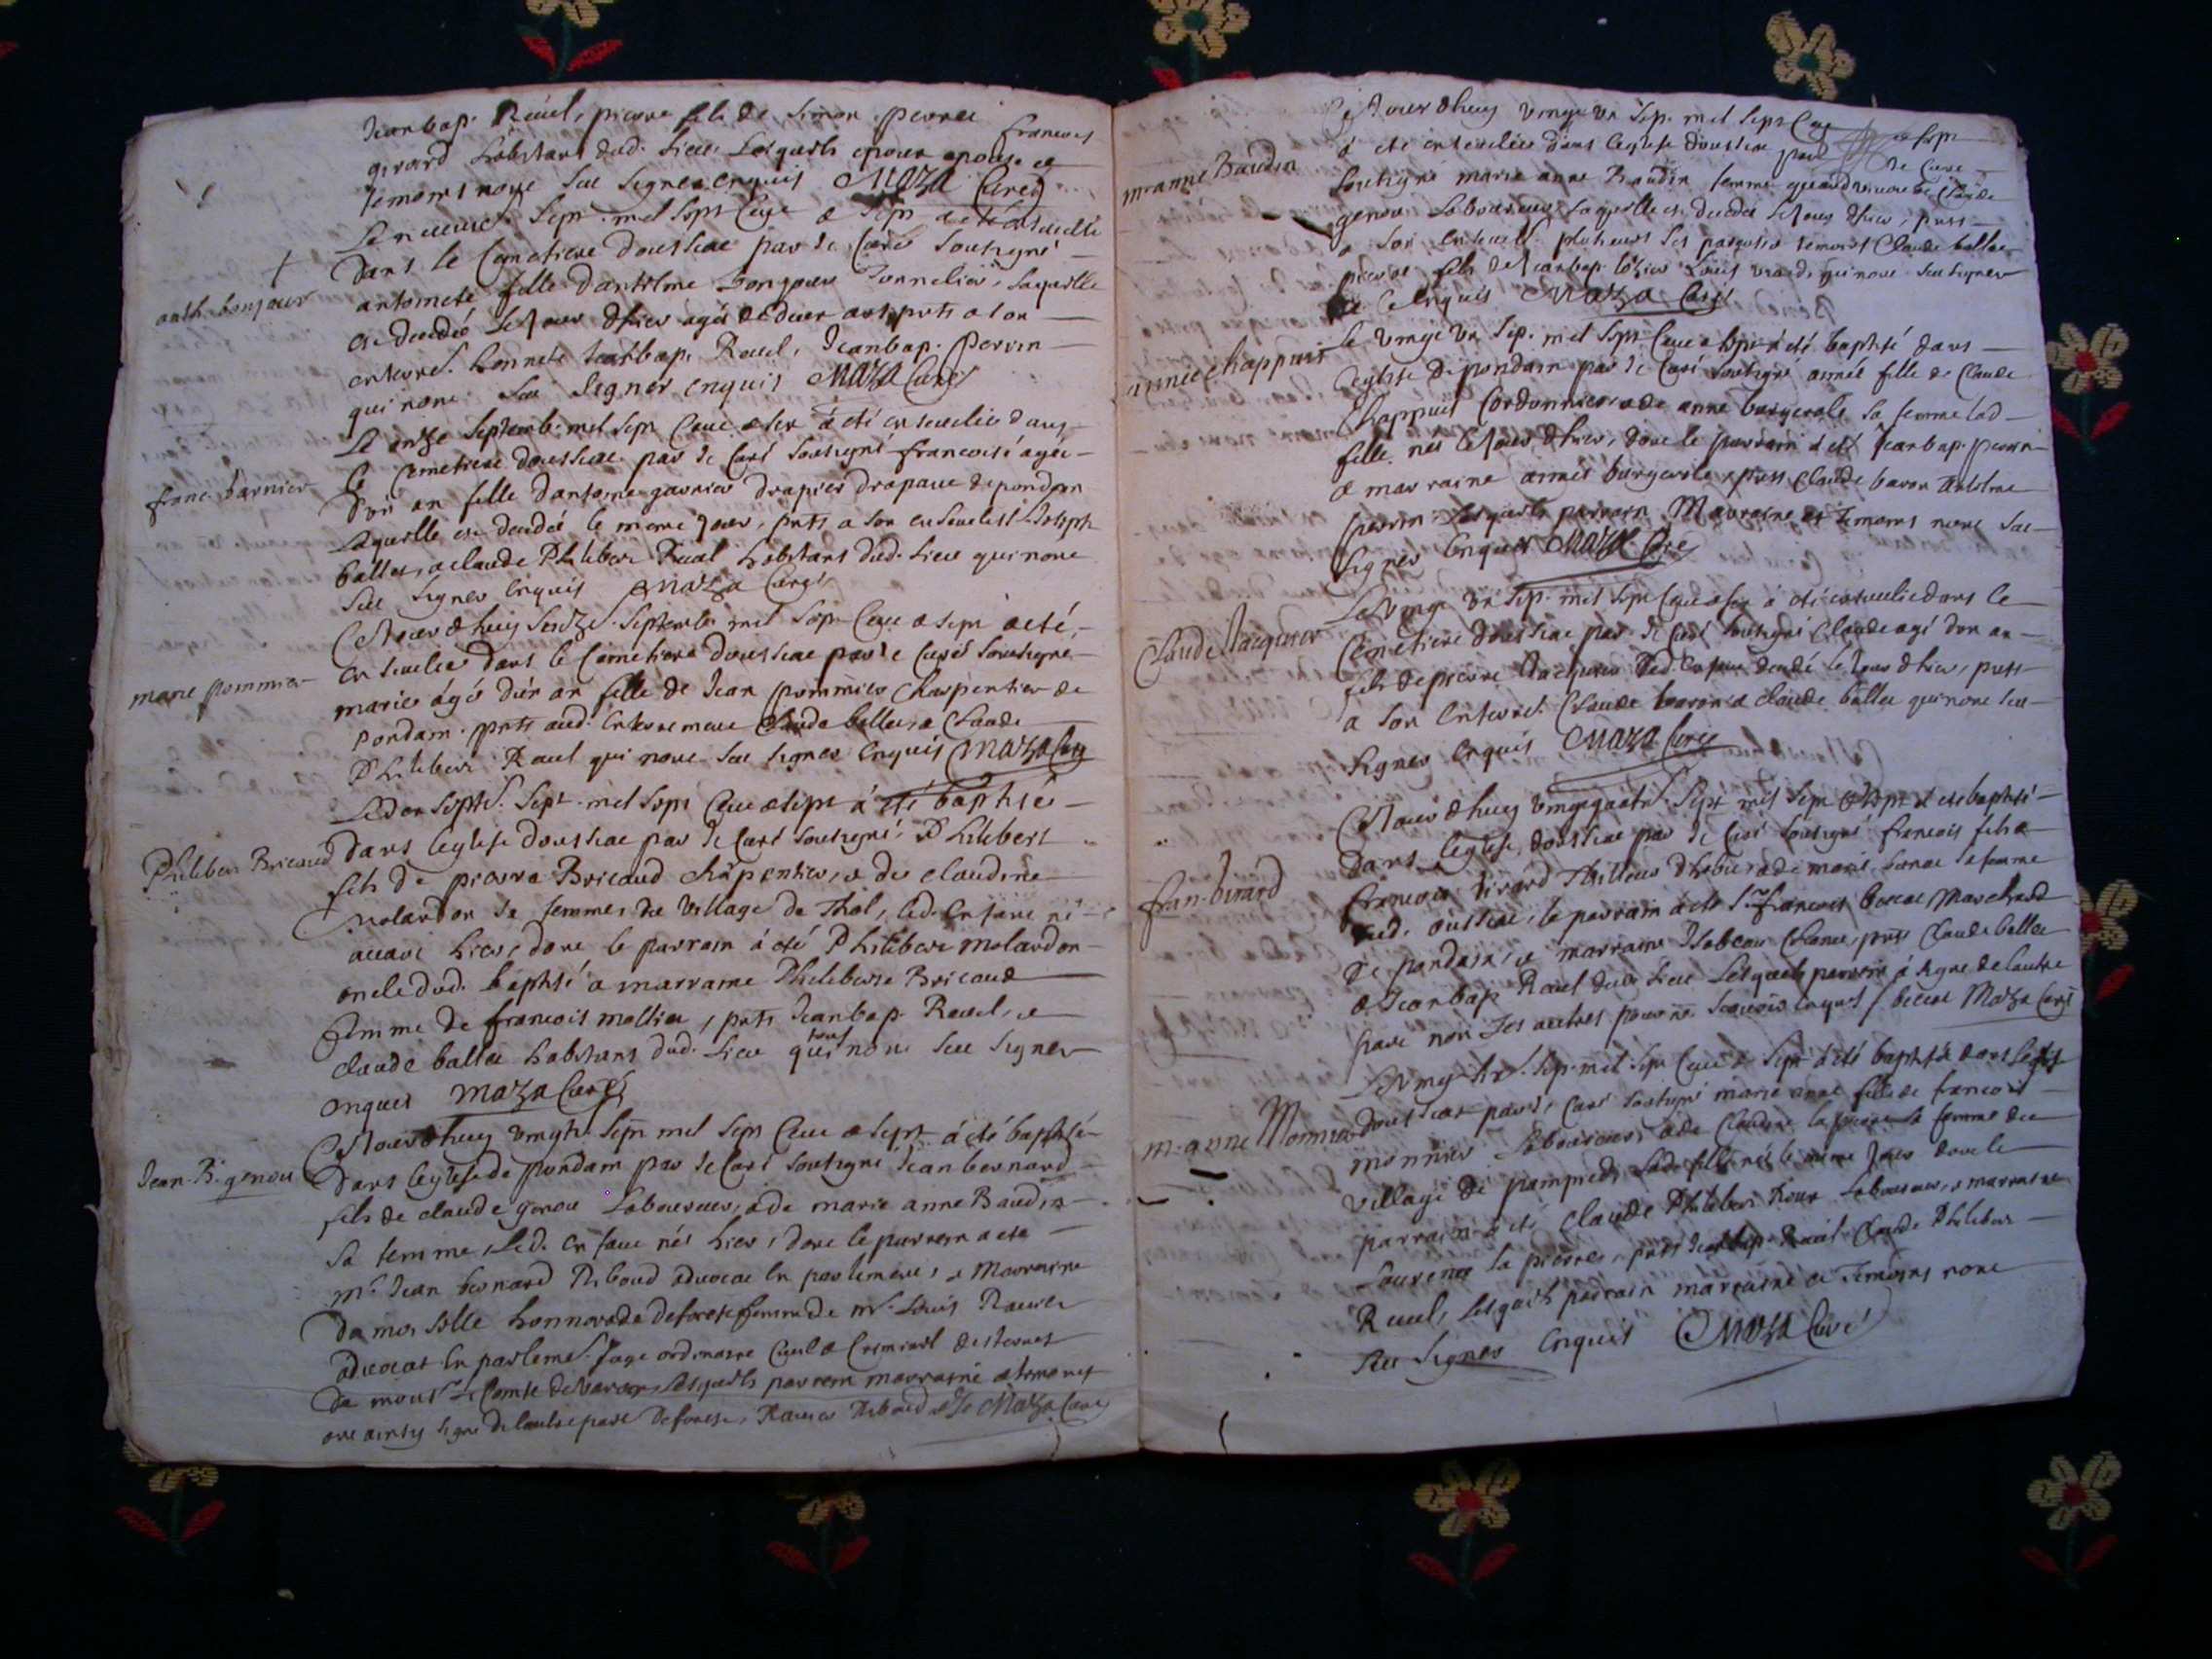 Jeanbap. Ravel, pierre fils de Simon perret francois
girard habitans dud. lieu, Lesquels epoux epouse et
temoins nont sceu signer enquis Maza Curé
Le neuvie. Sept. mil sept Cent & Sept a eté ensevelie
anth. bonjour
Dans le Cemetiere doussiat par Je Curé soussigné
antoinete fille dantelme bonjour Tonnelier, Laquelle
est decedée le jour dhier agée de deux ans prts a son
enterre. honnete Jeanbap. Ravel, Jeanbap. perrin
qui nont sceu signer enquis Maza Curé
franc. garnier
Le onze septemb. mil sept Cent & sept à eté ensevelie dans
le Cemetiere doussiat par Je Curé soussigné francoise agée
d'un an fille dantoine garnier drapier drapant de pondain
Laquelle est decedée le meme jour, prts a son ensevelisst Joseph
ballet, a claude Philibert Raval habitans dud. lieu qui nont
sceu signer enquis Maza Curé
marie pommier
Cejourdhuy seize. Septembr mil sept Cent & sept a eté,
ensevelie dans le Cemetiere doussiat par Je Curé soussigné
marie agée d'un an fille de Jean pommier Charpentier de
pondain. prts aud. enterrement Claude ballet, & Claude
Philibert Ravel qui nont sceu signer enquis Maza Curé
Philibert Bricaud
Le dix sept. Sept. mil sept Cent & sept à eté baptisé
dans leglise doussiat par Je Curé soussigné, Philibert
fils de pierre Bricaud Charpentier, & de claudine
molardon sa femme, du village de Thol, led. enfant né
avant hier, dont le parrain à eté Philibert molardon
oncle dud. baptisé & marraine Philiberte Bricaud
femme de francois mollier, prts Jeanbap. Ravel, et
claude ballet habitans dud. lieu qui tous nont sceu signer
enquis Maza Curé
Jean. B. genou
Cejourdhuy vingt. Sept. mil sept Cent & sept à eté baptisé
dans leglise de pondain par Je Curé soussigné Jean bernard
fils de claude genou Laboureur, & de marie anne Baudin
sa femme, Led. enfant né hier, dont le parrain a eté
mr. Jean bernard Riboud advocat en parlement, & Marraine
Damoiselle honnorade deforest femme de mr. Louis Ravier
advocat en parleme. Juge ordinaire Civil & Criminel desterres
de monsr. Le Comte de varax, Lesquels parrain marraine & temoins
ont ainsy signé de lautre part Deforest, Ravier Riboud & Je Maza Curé
m. anne Baudin
Cejourdhuy vingt un Sep. mil sept Cent & sept
à eté ensevelie dans leglise doussiat par Je Curé
soussigné marie anne Baudin femme quand vivoit de Claude
genou Laboureur, Laquelle est decedée le jour dhier, prts
a son enterre. plusieurs ses paroissiens temoins Claude ballet
pierre fils de Jeanbap. lozier Louis qui nont sceu signer
de ce enquis Maza Curé
aimée Chappuis
Le vingt un Sep. mil sept Cent & sept à eté baptisé dans
leglise de pondain par Je Curé soussigné aimée fille de Claude
Chappuis Cordonnier & de anne burgerole sa femme lad
fille née le jour dhier, dont le parrain a eté Jeanbap. perrin
& marraine aimée burgerole, prts Claude baron Antelme
perrin. Lesquels parrain Marraine et temoins nont sceu
signer enquis Maza Curé
Claude Jacquier
Le vingt un Sep. mil sept Cent & sept à eté ensevelie dans le
Cemetiere doussiat par Je Curé soussigné Claude agé d'un an
fils de pierre Jacquier led. enfant decedé le jour dhier, prts
a son enterre. Claude baron & claude ballet qui nont sceu
signer enquis Maza Curé
fran. birard
Cejourdhuy vingt quatre. Sept mil sept Cent sept a eté baptisé
dans leglise, doussiat par Je Curé soussigné francois fils a
francois birard Tailleur dhabits & de marie sa femme
dud. oussiat, le parrain a eté Sr. francois Marchand
de pondain, et marraine Isabeau, prts Claude ballet
& Jeanbap Ravel dud. lieu Lesquels parrain à signé de lautre
part non les autres pour ne scavoir enquis Maza Curé
m. anne Monnier
Le vingt Sep. mil sept Cent & sept à eté baptisé dans leglise
doussiat par Je Curé soussigné marie anne fille de francois
monnier Laboureur, & de Claudine la pierre sa femme du
village de, Lade fille née le meme jour dont le
parrain a eté Claude Philibert Roux Laboureur, & marraine
Laurence la pierre, prts Jeanbap. Ravel Claude Philibert
Ravel, Lesquels parrain marraine et temoins nont
sceu signer enquis Maza Curé